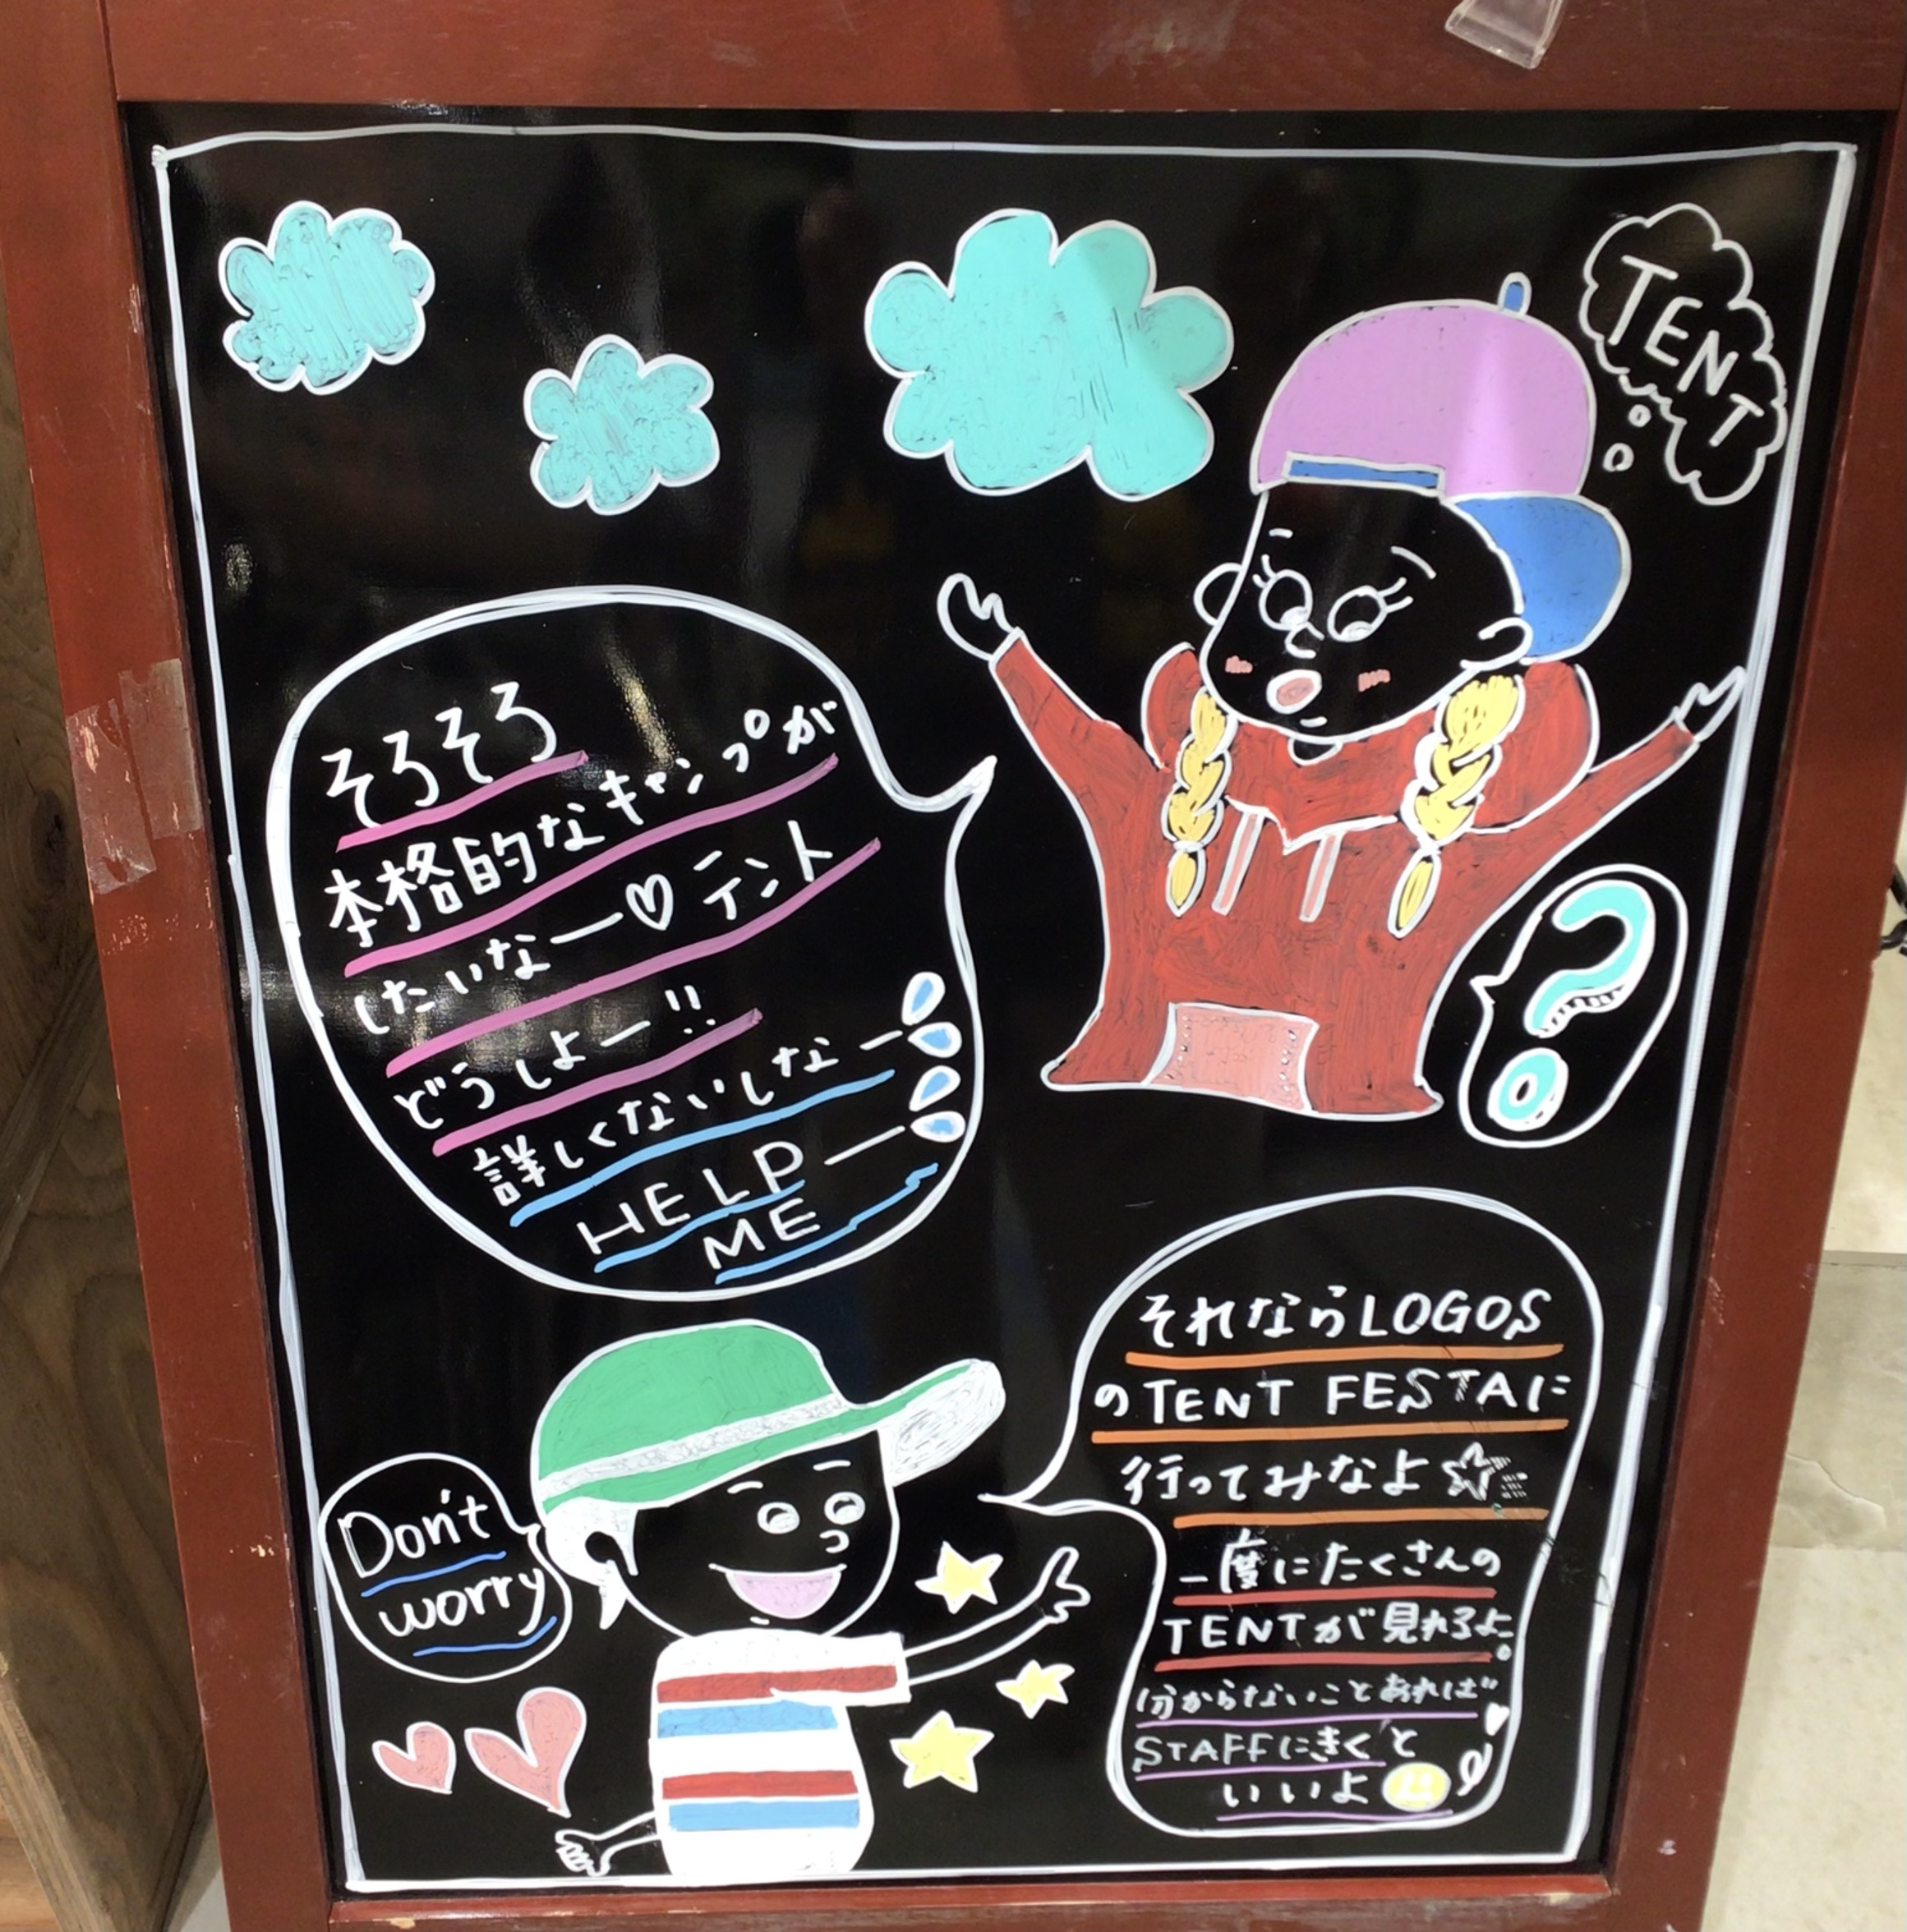 TENT
そろそろ
本格的なキャンプが
したいなー♡テント
どうしよー!!
詳しくないしなー
HELPー
ME
?
それならLOGOS
のTENT FESTAに
行ってみなよ☆
一度にたくさんの
TENTが見れるよ。
分からないことあれば
STAFFにきくと
いいよ
Don't
worry